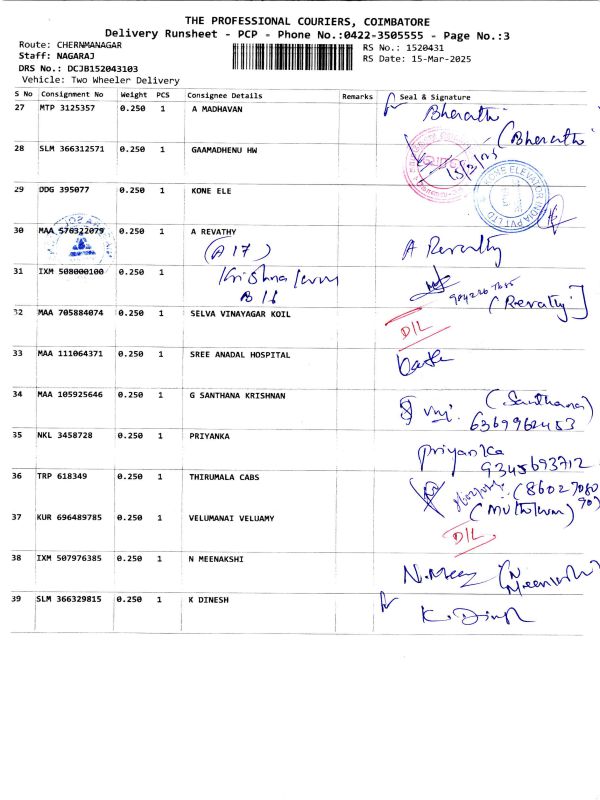 THE PROFESSIONAL COURIERS, COIMBATORE
Delivery Runsheet - PCP - Phone No.:0422-3505555 - Page No.:3
Route: CHERNMANAGAR
Staff: NAGARAJ
DRS No.: DCJB152043103
Vehicle: Two Wheeler Delivery
RS No.: 1520431
RS Date: 15-Mar-2025
S No Consignment No Weight PCS Consignee Details Remarks Seal & Signature
27 MTP 3125357 0.250 1 A MADHAVAN Bharathi
(Bharathi
28 SLM 366312571 0.250 1 GAAMADHENU HW 15/3/25
29 DDG 395077 0.250 1 KONE ELE
KONE ELEVATOR INDIA PVT LTD
30 MAA 576322079 0.250 1 A REVATHY A Revathy
(A 17)
31 IXM 508000100 0.250 1 Krishna (Revathy)
B 16
32 MAA 705884074 0.250 1 SELVA VINAYAGAR KOIL D/L
33 MAA 111064371 0.250 1 SREE ANADAL HOSPITAL
34 MAA 105925646 0.250 1 G SANTHANA KRISHNAN (Santhana)
6369962453
35 NKL 3458728 0.250 1 PRIYANKA Priyanka
9345693712
36 TRP 618349 0.250 1 THIRUMALA CABS
37 KUR 696489785 0.250 1 VELUMANAI VELUAMY (Muthukumar)
D/L
38 IXM 507976385 0.250 1 N MEENAKSHI N. Mee (N Meenakshi)
39 SLM 366329815 0.250 1 K DINESH K. Dinesh